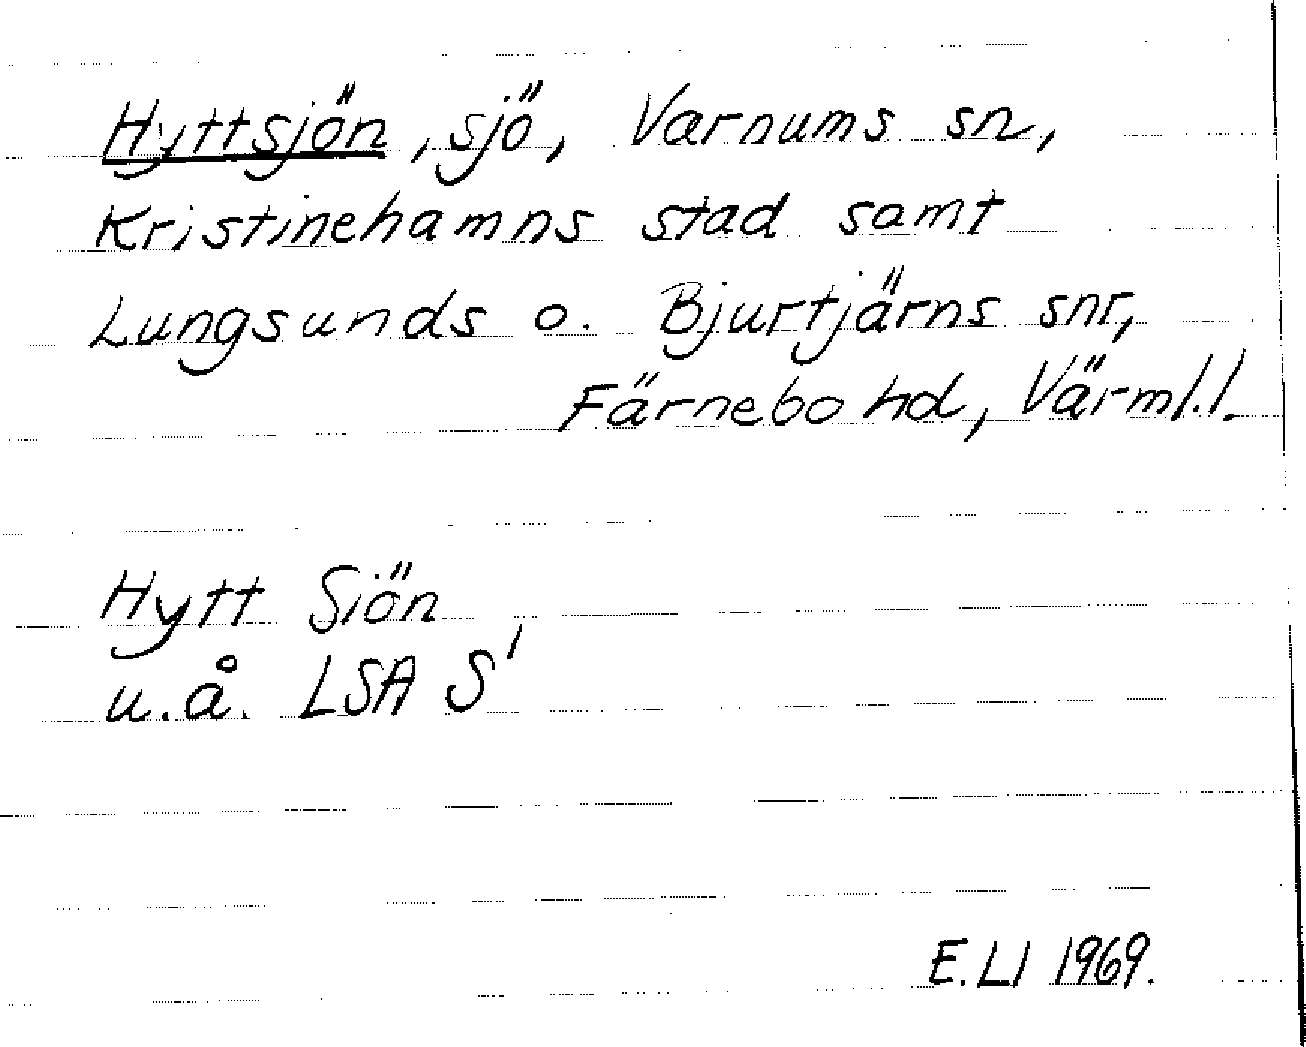 Hyttsjön, sjö, Varnums sn,
Kristinehamns stad samt
Lungsunds o. Bjurtjärns snr,
Färnebo hd, Värml.l.
Hytt Siön
u.å. LSA S'
E.Ll 1969.